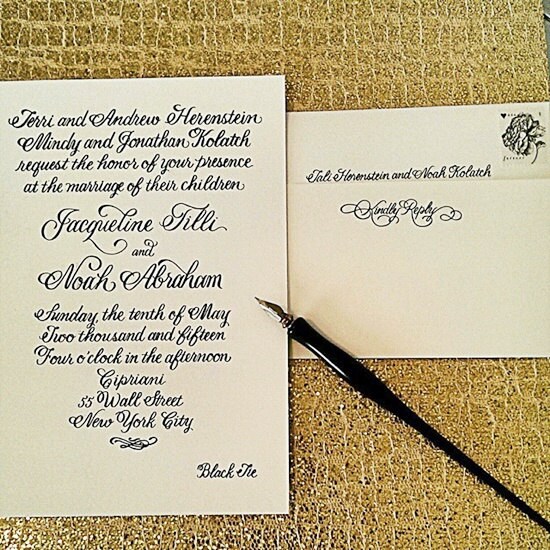 Terri and Andrew Herenstein
Mindy and Jonathan Kolatch
request the honor of your presence
at the marriage of their children
Jacqueline Tilli
and
Noah Abraham
Sunday, the tenth of May
Two thousand and fifteen
Four o'clock in the afternoon
Cipriani
55 Wall Street
New York City
Black Tie
forever
Tali Herenstein and Noah Kolatch
Kindly Reply